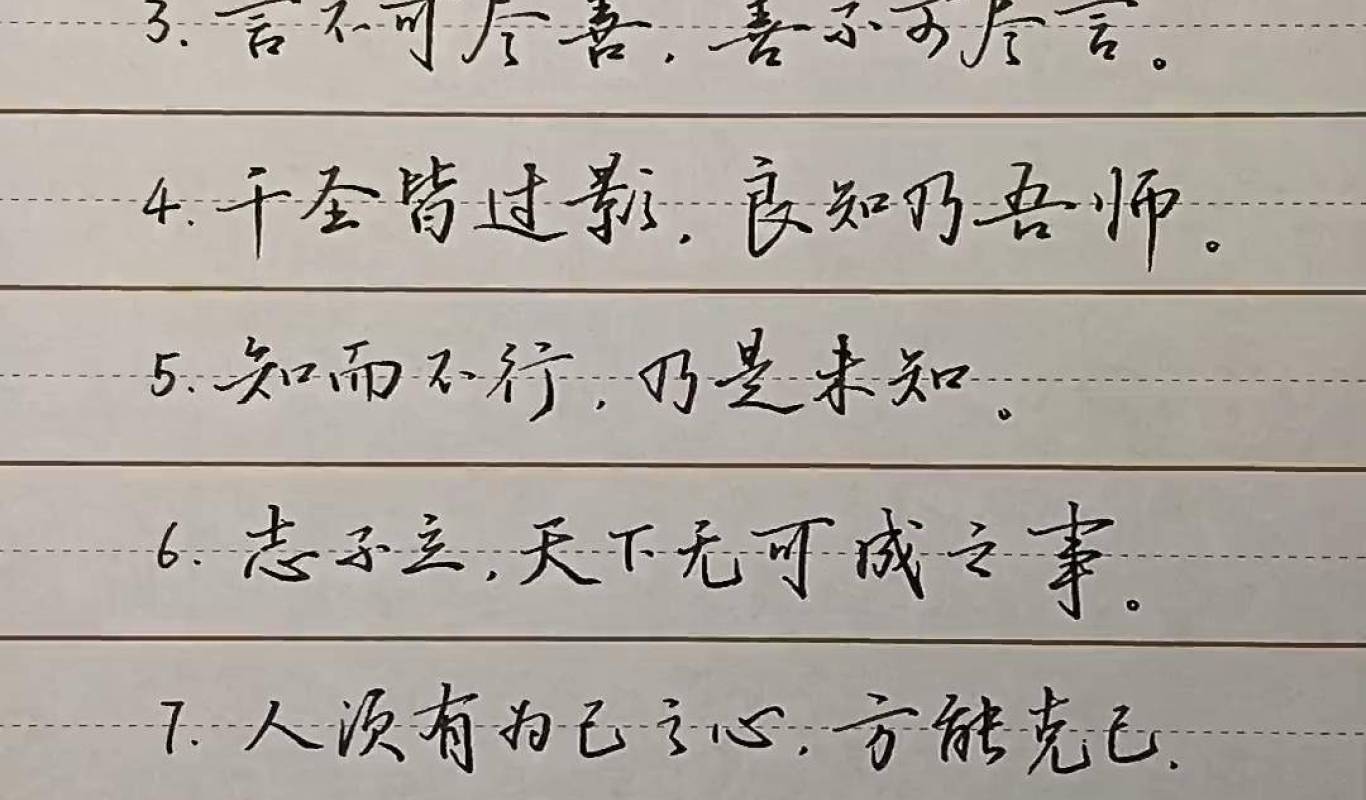 3. 言不可尽善，善不可尽言。
4. 千圣皆过影，良知乃吾师。
5. 知而不行，乃是未知。
6. 志不立，天下无可成之事。
7. 人须有为己之心，方能克己，